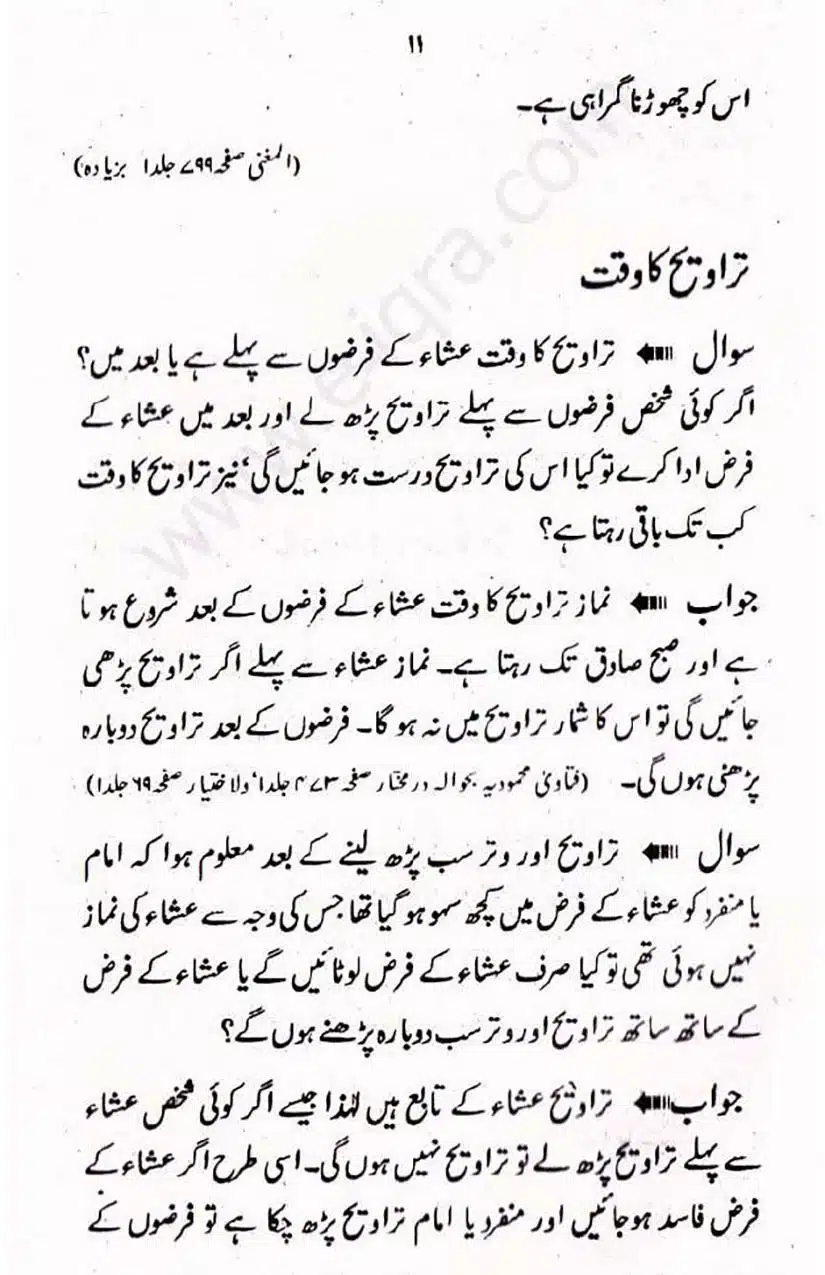 ۱۱
اس کو چھوڑنا گمراہی ہے۔
(المغنی صفحہ ۷۹۹ جلد۱ بزیادہ)
تراویح کا وقت
سوال تراویح کا وقت عشاء کے فرضوں سے پہلے ہے یا بعد میں؟
اگر کوئی شخص فرضوں سے پہلے تراویح پڑھ لے اور بعد میں عشاء کے
فرض ادا کرے تو کیا اس کی تراویح درست ہو جائیں گی، نیز تراویح کا وقت
کب تک باقی رہتا ہے؟
جواب نماز تراویح کا وقت عشاء کے فرضوں کے بعد شروع ہوتا
ہے اور صبح صادق تک رہتا ہے۔ نماز عشاء سے پہلے اگر تراویح پڑھی
جائیں گی تو اس کا شمار تراویح میں نہ ہو گا۔ فرضوں کے بعد تراویح دوبارہ
پڑھنی ہوں گی۔ (فتاویٰ محمودیہ بحوالہ در مختار صفحہ ۴۷۳ جلد۱، ولا ختیار صفحہ ۶۹ جلد۱)
سوال تراویح اور وتر سب پڑھ لینے کے بعد معلوم ہوا کہ امام
یا منفرد کو عشاء کے فرض میں کچھ سہو ہو گیا تھا جس کی وجہ سے عشاء کی نماز
نہیں ہوئی تھی تو کیا صرف عشاء کے فرض لوٹائیں گے یا عشاء کے فرض
کے ساتھ ساتھ تراویح اور وتر سب دوبارہ پڑھنے ہوں گے؟
جواب تراویح عشاء کے تابع ہیں لہٰذا جیسے اگر کوئی شخص عشاء
سے پہلے تراویح پڑھ لے تو تراویح نہیں ہوں گی۔ اسی طرح اگر عشاء کے
فرض فاسد ہو جائیں اور منفرد یا امام تراویح پڑھ چکا ہے تو فرضوں کے
www.e-iqra.com